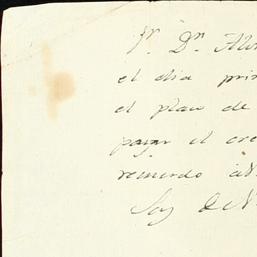 Sr. Dn. Alv
el dia pri
el plan de
pagar el cre
recuerdo a
Soy de V